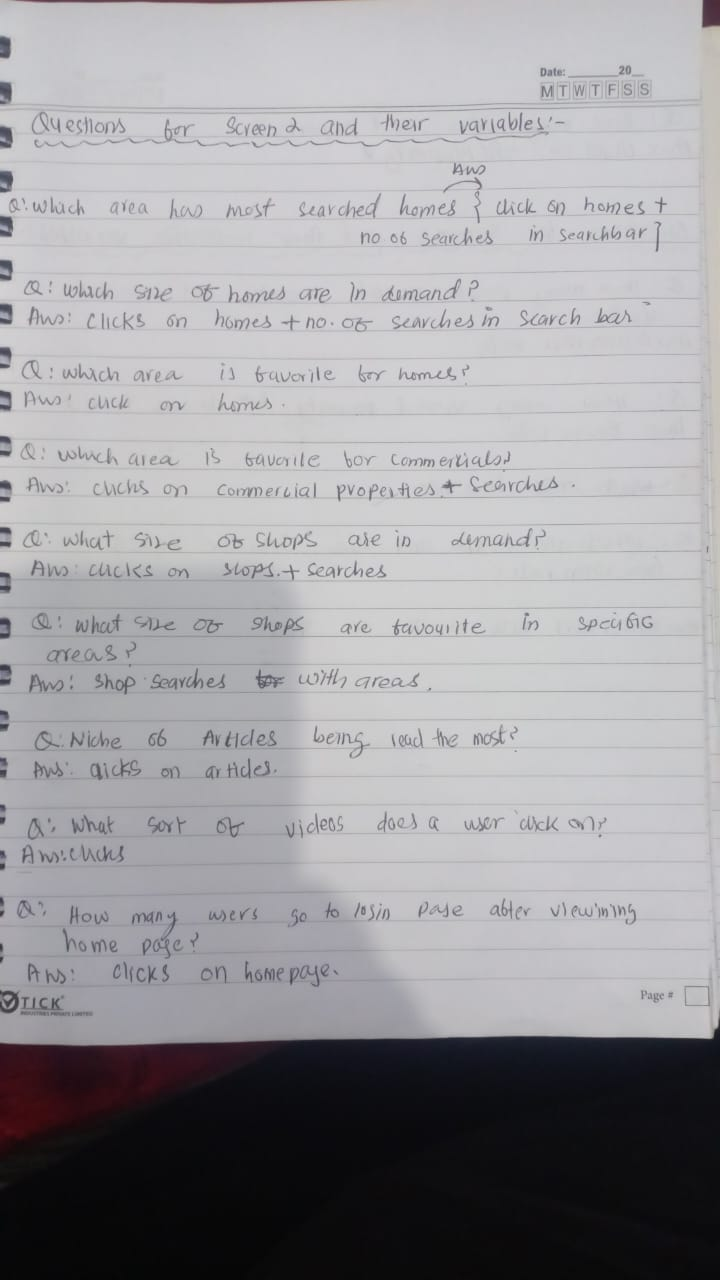 Date: ______ 20__
M T W T F S S
Questions for Screen 2 and their variables:-
Ans
Q: which area has most searched homes } click on homes +
no of searches in searchbar }
Q: which size of homes are in demand?
Ans: clicks on homes + no. of searches in search bar
Q: which area is favorite for homes?
Ans: click on homes.
Q: which area is favorite for commercials?
Ans: clicks on commercial properties + searches.
Q: what size of shops are in demand?
Ans: clicks on slops. + searches
Q: what size of shops are favourite in specific
areas?
Ans: shop searches for with areas.
Q: Niche of Articles being read the most?
Ans: clicks on articles.
Q: what sort of videos does a user click on?
Ans: clicks
Q: How many users go to login page after viewining
home page?
Ans: clicks on homepage.
TICK
INDUSTRIES PRIVATE LIMITED
Page #